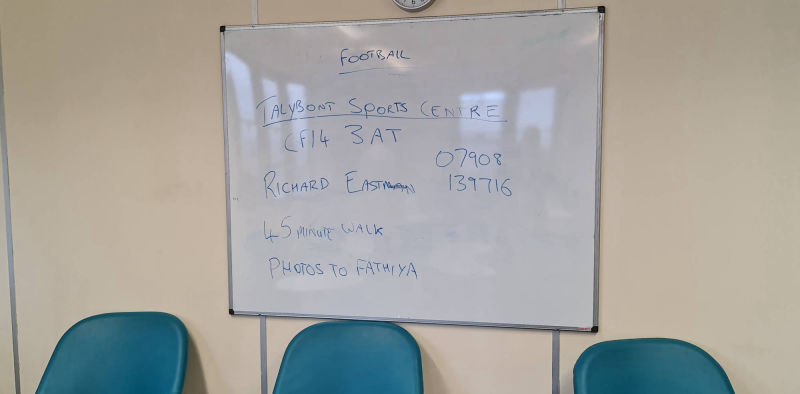 FOOTBALL
TALYBONT SPORTS CENTRE
CF14 3AT
07908
RICHARD EASTMAN 139716
45 MINUTE WALK
PHOTOS TO FATHIYA